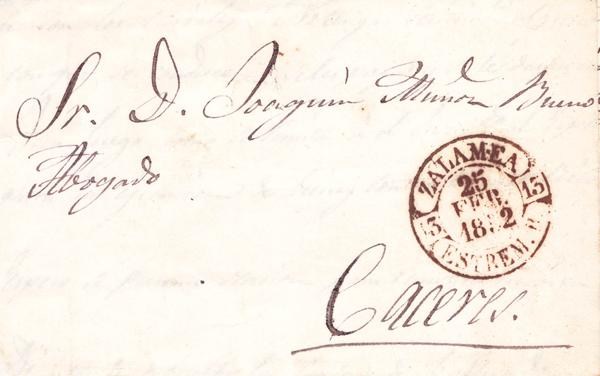 Sr. D. Joaquin Munoz Bueno
Abogado
ZALAMEA
25
FEB.
13 13
1852
ESTREM. A.
Caceres.